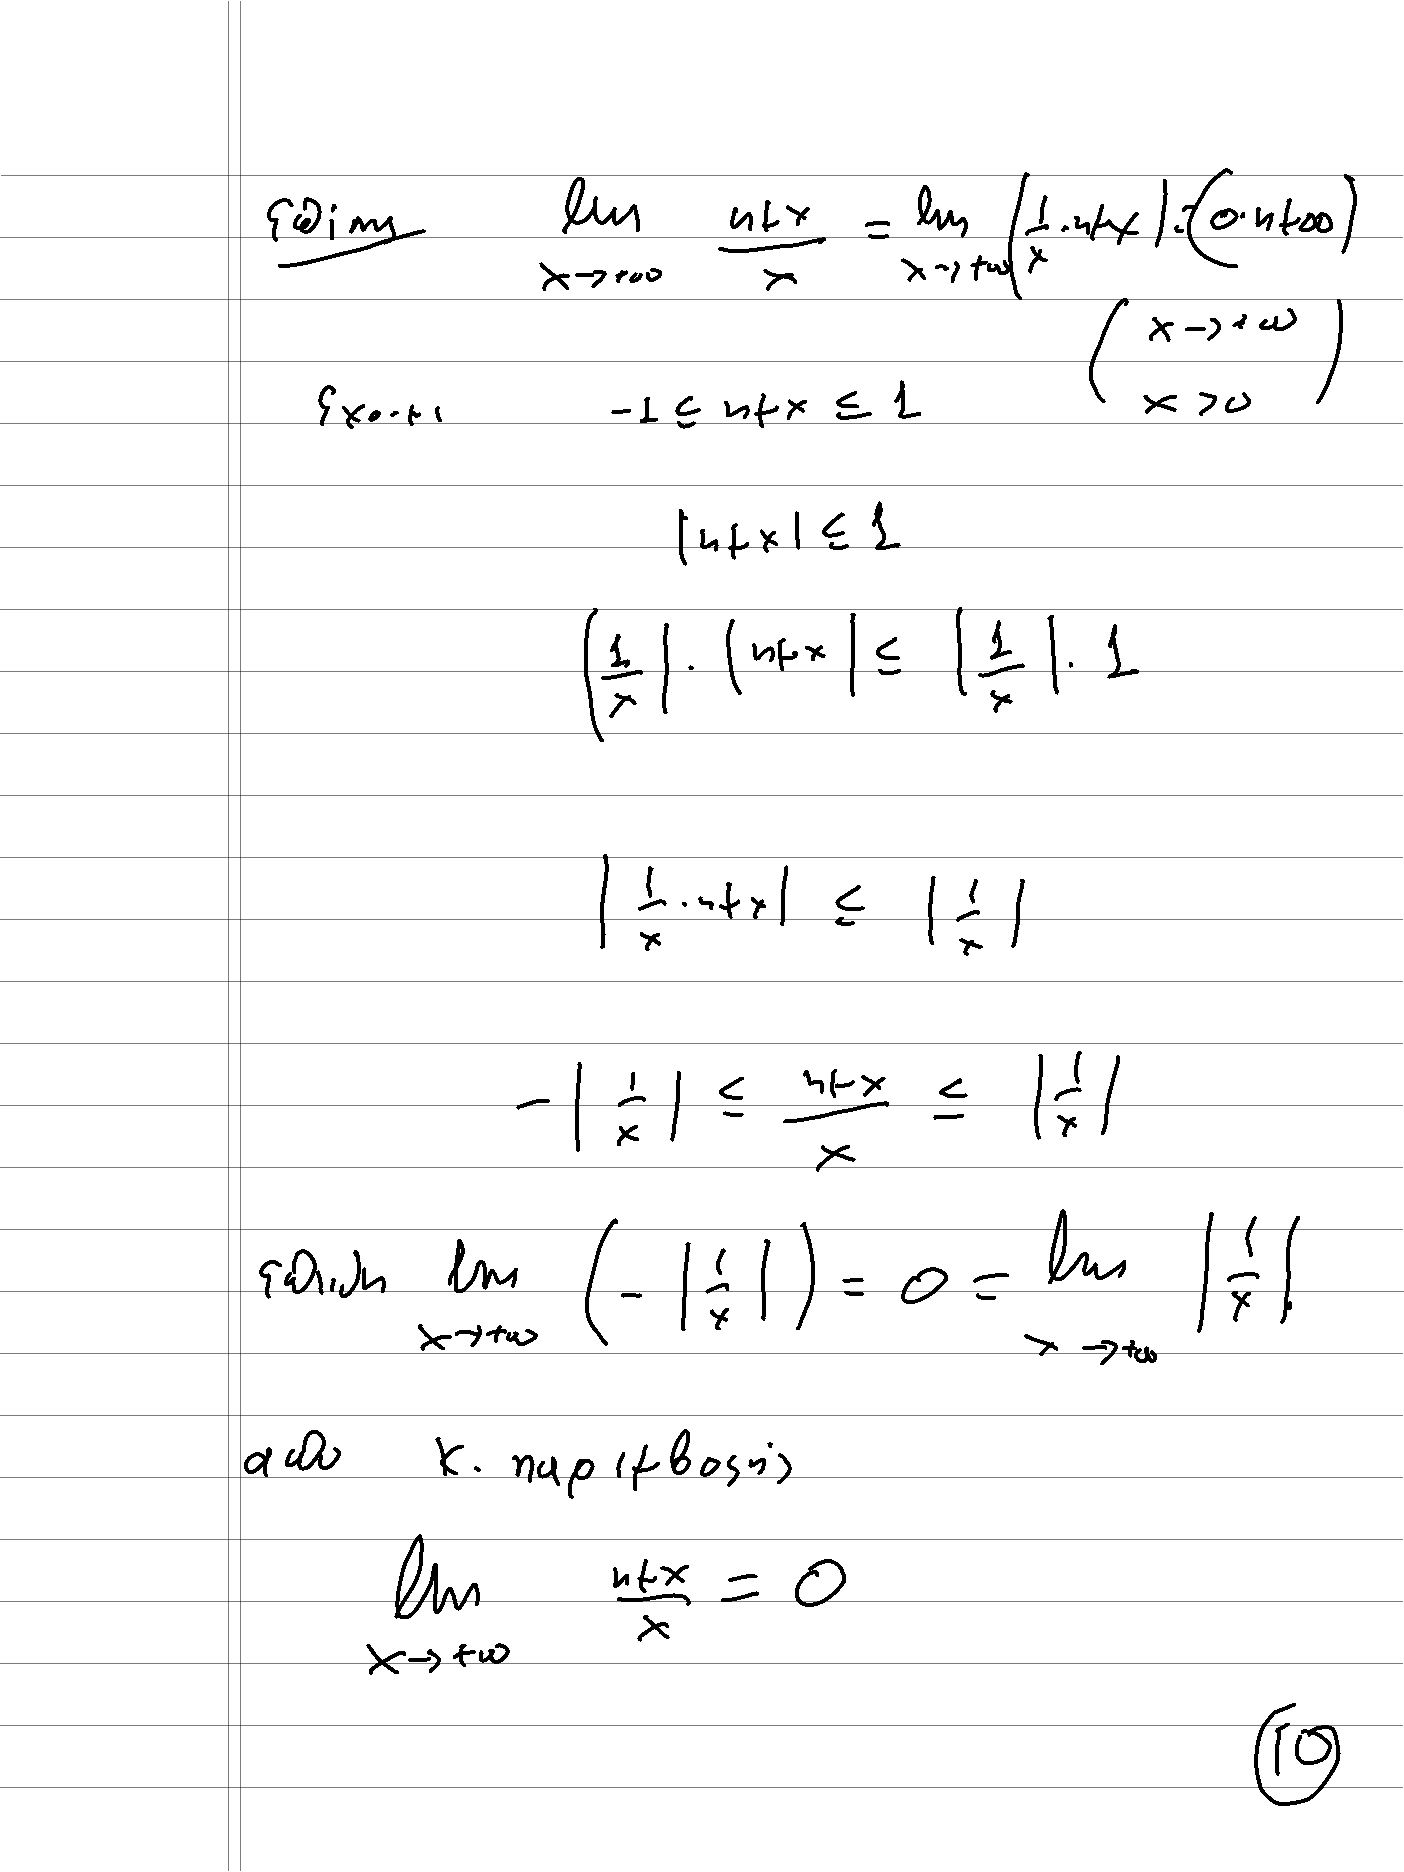 επίσης lim_{x→+∞} ημx/x = lim_{x→+∞} (1/x · ημx) = (0·ημ∞)
(x→+∞
Έχουμε -1 ≤ ημx ≤ 1 x>0)
|ημx| ≤ 1
|1/x| · |ημx| ≤ |1/x| · 1
|1/x · ημx| ≤ |1/x|
-|1/x| ≤ ημx/x ≤ |1/x|
επειδή lim_{x→+∞} (-|1/x|) = 0 = lim_{x→+∞} |1/x|
από κ. παρεμβολής
lim_{x→+∞} ημx/x = 0
10